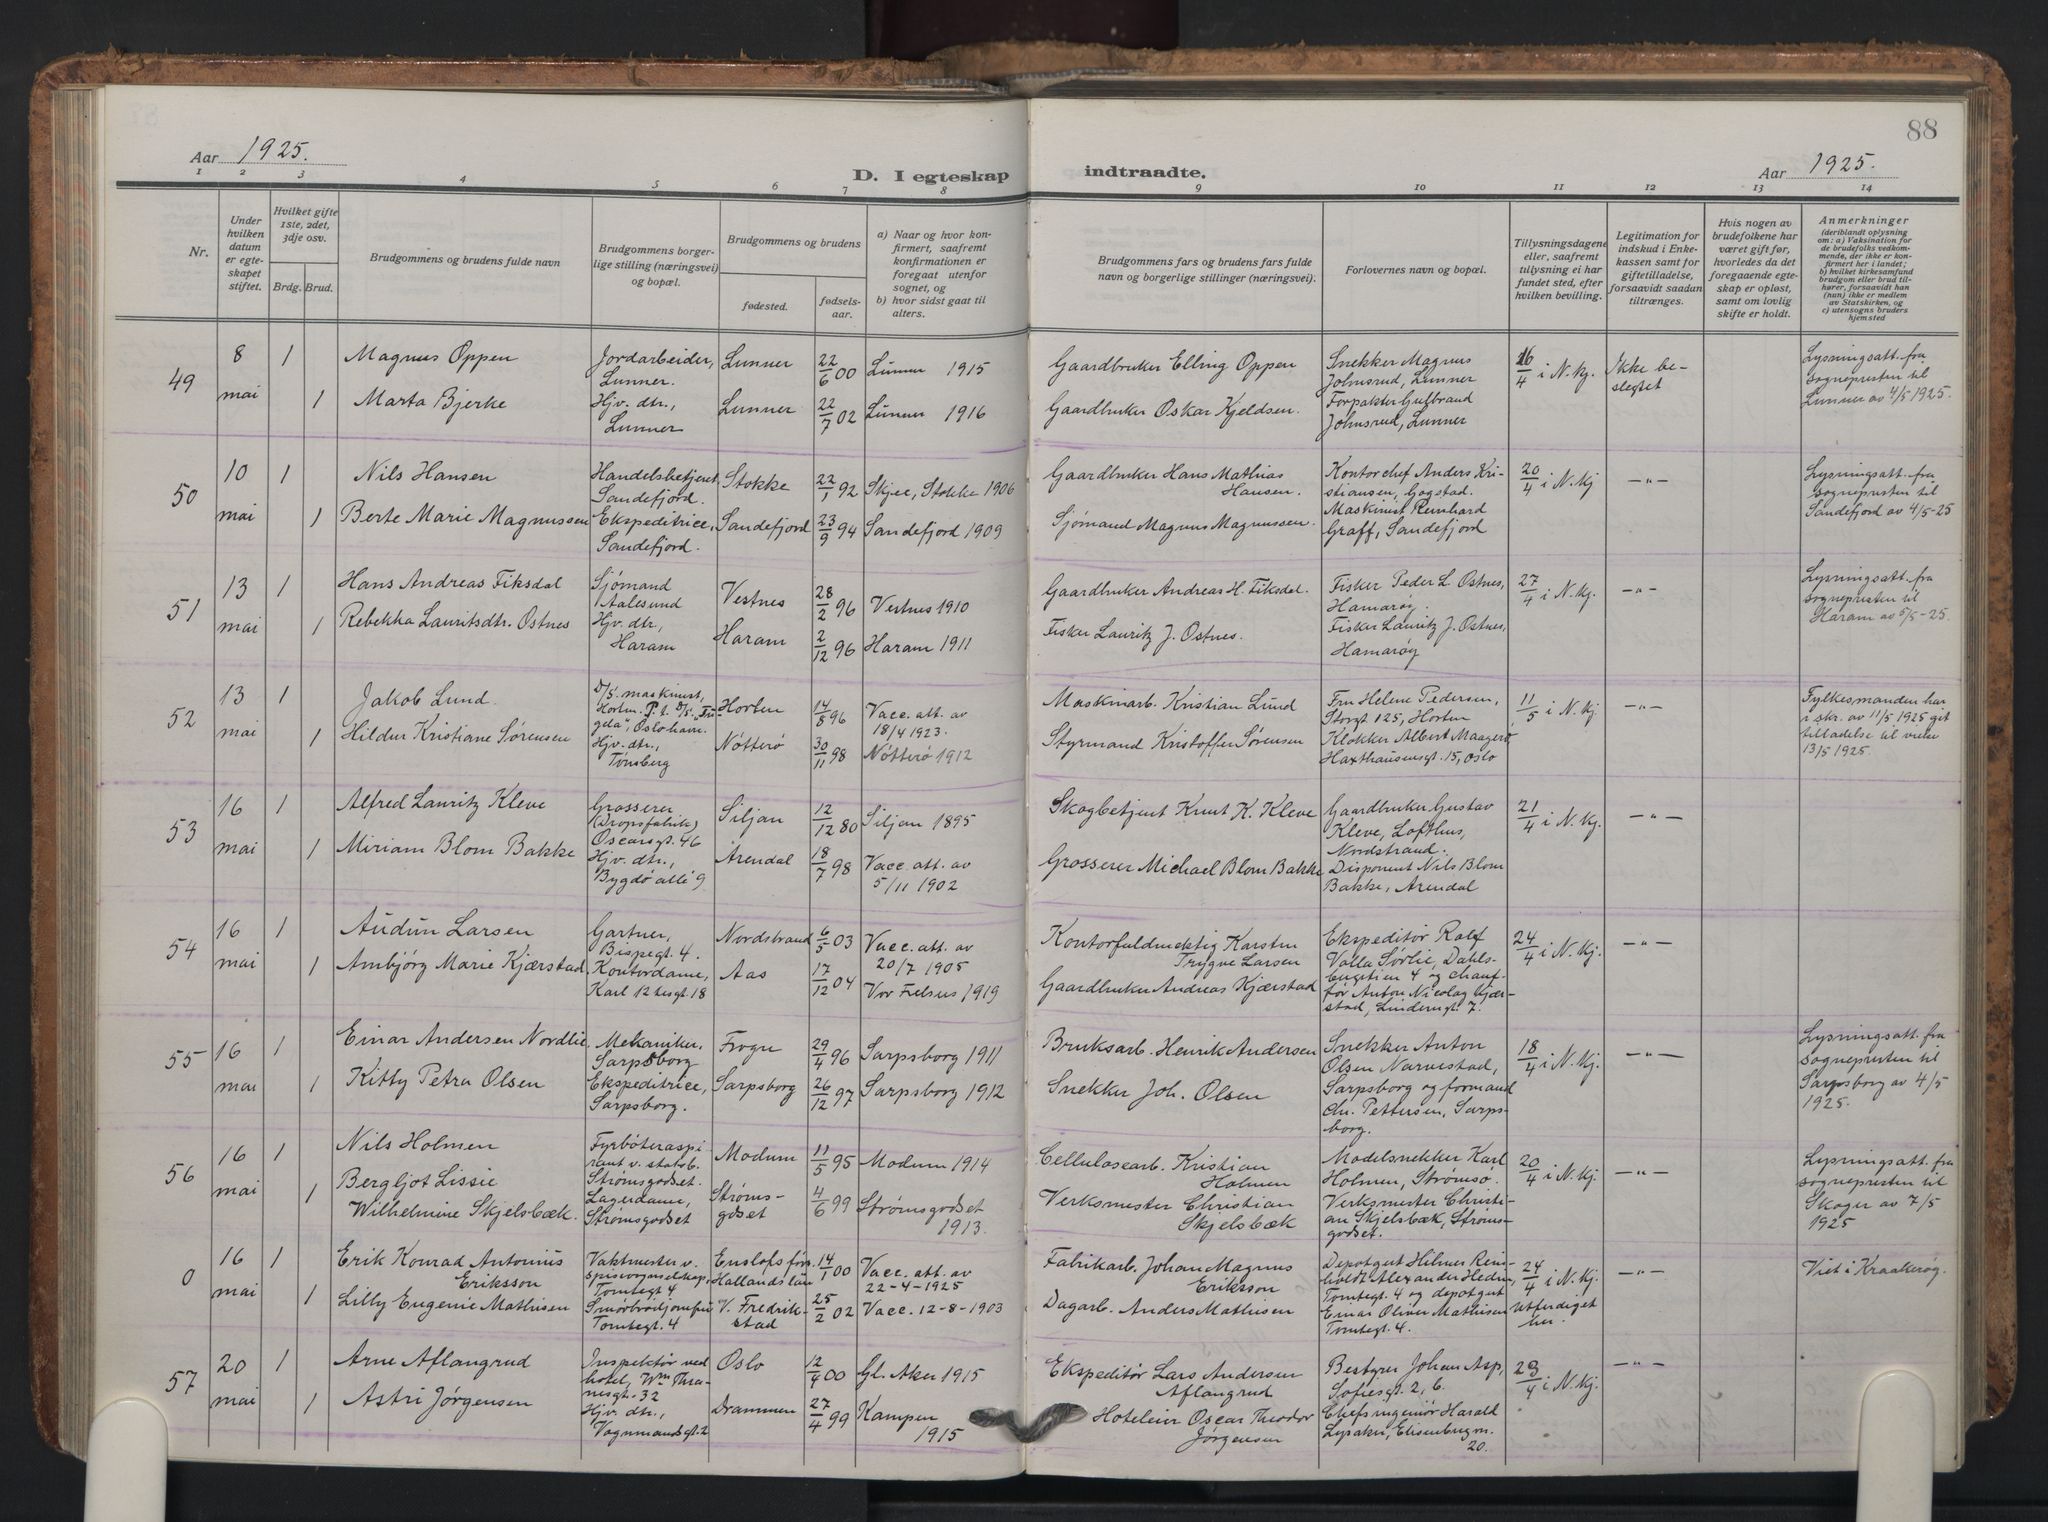 88
Aar 1925.
D. I egteskap indtraadte.
Aar 1925.
1 2 3 4 5 6 7 8 9 10 11 12 13 14
Nr.
Under hvilken datum er egteskapet stiftet.
Hvilket gifte 1ste, 2det, 3dje osv.
Brdg. Brud.
Brudgommens og brudens fulde navn
Brudgommens borgerlige stilling (næringsvei) og bopæl.
Brudgommens og brudens
fødested. fødselsaar.
a) Naar og hvor konfirmert, saafremt konfirmationen er foregaat utenfor sognet, og
b) hvor sidst gaat til alters.
Brudgommens fars og brudens fars fulde navn og borgerlige stillinger (næringsvei).
Forlovernes navn og bopæl.
Tillysningsdagene eller, saafremt tillysning ei har fundet sted, efter hvilken bevilling.
Legitimation for indskud i Enkekassen samt for giftetilladelse, forsaavidt saadan tiltrænges.
Hvis nogen av brudefolkene har været gift før, hvorledes da det foregaaende egteskap er opløst, samt om lovlig skifte er holdt.
Anmerkninger (deriblandt oplysning om: a) Vaksination for de brudefolks vedkommende, der ikke er konfirmert her i landet; b) hvilket kirkesamfund brudgom eller brud tilhører, forsaavidt han (hun) ikke er medlem av Statskirken, og c) utensogns bruders hjemsted
49
8 mai
1
Magnus Oppen
Jordarbeider, Lunner.
Lunner
22/6 00
Lunner 1915
Gaardbruker Elling Oppen
Snekker Magnus Johnsrud, Lunner
16/4 i N. kj.
Ikke belegtet
Lysningsatt. fra sognepresten til Lunner av 4/5 1925.
1
Marta Bjerke
Hjv. dtr., Lunner
Lunner
22/7 02
Lunner 1916
Gaardbruker Oskar Kjeldsen.
Forpakter Gulbrand Johnsrud, Lunner
50
10 mai
1
Nils Hansen
Handelsbetjent, Sandefjord.
Stokke
22/1 92
Skjee, Stokke 1906
Gaardbruker Hans Mathias Hansen.
Kontorchef Anders Kristiansen, Gogstad.
20/4 i N. kj
-"-
Lysningsatt. fra sognepresten til Sandefjord av 4/5-25
1
Berte Marie Magnussen
Ekspeditrice, Sandefjord.
Sandefjord
23/9 94
Sandefjord 1909
Sjømand Magnus Magnussen.
Maskinist Reinhard Graff, Sandefjord
51
13 mai
1
Hans Andreas Fiksdal
Sjømand Aalesund
Vestnes
28/2 96
Vestnes 1910
Gaardbruker Andreas H. Fiksdal.
Fisker Peder L. Ostnes, Hamarøy.
27/4 i N. kj.
-"-
Lysningsatt. fra sognepresten til Haram av 5/5-25.
1
Rebekka Lauritsdtr. Ostnes
Hjv. dtr., Haram
Haram
2/12 96
Haram 1911
Fisker Lauritz J. Ostnes.
Fisker Lauritz J. Ostnes, Hamarøy
52
13 mai
1
Jakob Lund
D/S. maskinist, Horten. P. t. D/S. "Frigda", Oslo havn.
Horten
14/8 96
Vacc. att. av 18/4 1923.
Maskinarb. Kristian Lund
Fru Helene Pedersen, Storgt 125, Horten
11/5 i N. kj
-"-
Fylkesmanden har i skr. av 11/5 1925 git tilladelse til vielse 13/5 1925.
1
Hildur Kristiane Sørensen
Hjv. dtr., Tønsberg
Nøtterø
30/11 98
Nøtterø 1912
Styrmand Kristoffer Sørensen
Klokker Albert Maagerø Haxthausensgt. 15, Oslo
53
16 mai
1
Alfred Lauritz Kleve
Grosserer (Dropsfabrik) Oscarsgt. 46
Siljan
12/12 80
Siljan 1895
Skogbetjent Knut K. Kleve
Gaardbruker Gustav Kleve, Lofthus, Nordstrand.
21/4 i N. kj.
-"-
1
Miriam Blom Bakke
Hjv. dtr., Bygdø allé 9
Arendal
18/7 98
Vacc. att. av 5/11 1902
Grosserer Michael Blom Bakke
Disponent Nils Blom Bakke, Arendal
54
16 mai
1
Audun Larsen
Gartner, Bispegt. 4.
Nordstrand
6/5 03
Vacc. att. av 20/7 1905
Kontorfuldmektig Karsten Trygve Larsen
Ekspeditør Rolf Valla Sørlie, Dahlsbergstien 4 og chauffør Anton Nicolay Kjærstad, Linderngt. 7.
24/4 i N. kj.
-"-
1
Ambjörg Marie Kjærstad
Kontordame, Karl 12tesgt. 18
Aas
17/12 04
Vor Frelsers 1919
Gaardbruker Andreas Kjærstad
55
16 mai
1
Einar Andersen Nordlie
Mekaniker, Sarpsborg
Frogn
29/4 96
Sarpsborg 1911
Bruksarb. Henrik Andersen
Snekker Anton Olsen Narvestad, Sarpsborg og formand Chr. Pettersen, Sarpsborg.
18/4 i N. kj.
-"-
Lysningsatt. fra sognepresten til Sarpsborg av 4/5 1925.
1
Kitty Petra Olsen
Ekspeditrice, Sarpsborg.
Sarpsborg
26/12 97
Sarpsborg 1912
Snekker Joh. Olsen
56
16 mai
1
Nils Holmen
Fyrbøteraspirant v. statsb. Strømsgodset.
Modum
11/5 95
Modum 1914
Cellulosearb. Kristian Holmen
Modelsnekker Karl Holmen, Strømsø.
20/4 i N. kj.
-"-
Lysningsatt. fra sognepresten til Skoger av 7/5 1925
1
Bergljot Lissie Wilhelmine Skjelsbæk.
Lagerdame, Strømsgodset
Strømsgodset
4/6 99
Strømsgodset 1913.
Verksmester Christian Skjelsbæk
Verksmester Christian Skjelsbæk, Strømsgodset.
0
16 mai
1
Erik Konrad Antonius Eriksson
Vaktmester v. spisvognselskap, Tomtegt 4
Enslöfs förs. Hallandslän
14/1 00
Vacc. att. av 22-4-1925
Fabrikarb. Johan Magnus Eriksson
Depotgut Hilmer Reinholdt Alexander Hedin, Tomtegt. 4 og depotgut Einar Oliver Mathisen Tomtegt. 4.
24/4 i N. kj. Utferdiget her.
-"-
Viet i Kraakerøy.
1
Lilly Eugenie Mathisen
Smørbrødjomfru Tomtegt. 4
V. Fredrikstad
25/2 02
Vacc. 12-8-1903
Dagarb. Anders Mathisen
57
20 mai
1
Arne Aflangrud
Inspektør ved hotel, Wm Thranesgt. 32
Oslo
12/4 00
Gl. Aker 1915
Ekspeditør Lars Andersen Aflangrud
Bestyrer Johan Asp, Sofiesgt. 2, b.
23/4 i N. kj.
-"-
1
Astri Jørgensen
Hjv. dtr., Vognmandsgt. 2
Drammen
27/4 99
Kampen 1915
Hoteleier Oscar Theodor Jørgensen
Chefsingeniør Harald Lysaker, Elisenbergv. 20.